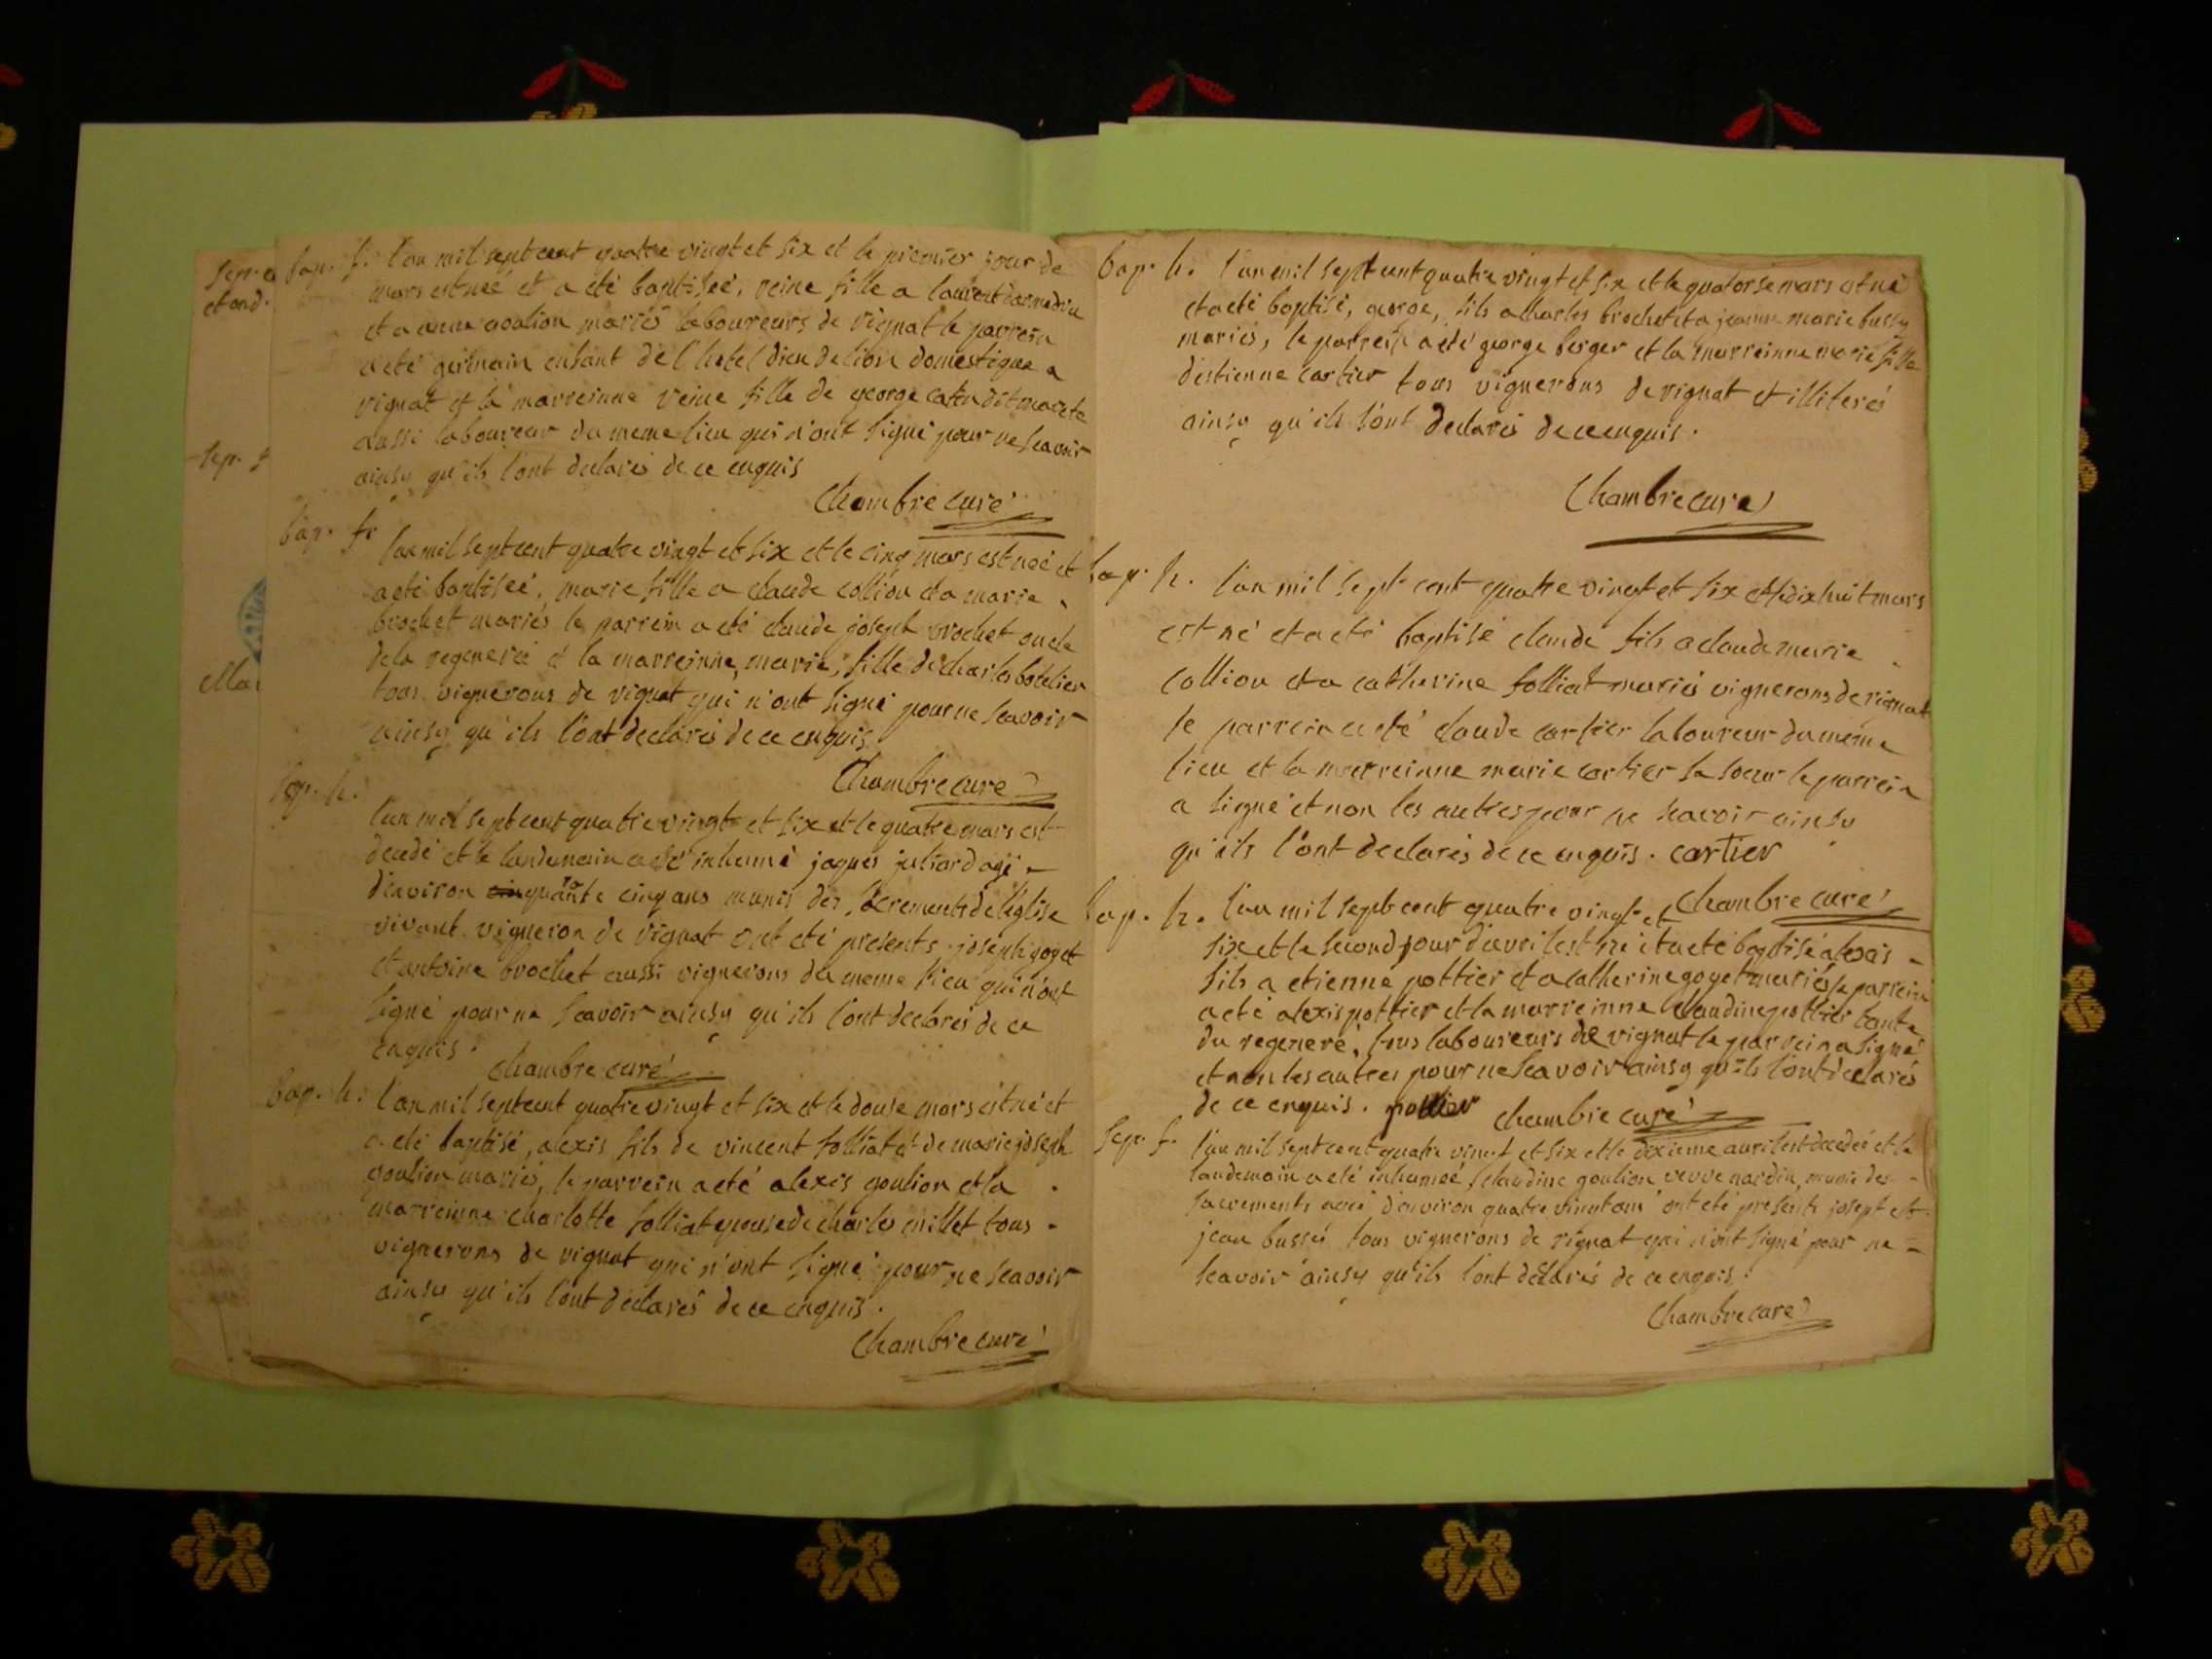 Sep.
et ond.
Sep. f
Mar
bap. f. l'an mil sept cent quatre vingt et six et le premier jour de
mars est neé et a eté baptiseé, reine fille a laurent
et a anne goulion mariés laboureurs de rignat le parrein
a eté germain enfant de l'hotel dieu de lion domestique a
rignat et la marreinne reine fille de george caten dit marete
aussi laboureur du meme lieu qui n'ont signé pour ne scavoir
ainsy qu'ils l'ont declarés de ce enquis
Chambre curé
bap. f. l'an mil sept cent quatre vingt et six et le cinq mars est neé et
a eté baptiseé, marie fille a claude collion et a marie
brochet mariés le parrein a eté claude joseph brochet oncle
de la regenereé et la marreinne, marie, fille de charles botelier
tous vignerons de rignat qui n'ont signé pour ne scavoir
ainsy qu'ils l'ont declarés de ce enquis.
Chambre curé
Sep. h.
l'an mil sept cent quatre vingt et six et le quatre mars est
decedé et le landemain a eté inhumé jaques juliard agé
d'environ cinq ans munis des sacrements de l'eglise
vivant vigneron de rignat ont eté presents joseph goyet
et antoine brochet aussi vignerons du meme lieu qui n'ont
signé pour ne scavoir ainsy qu'ils l'ont declarés de ce
enquis. Chambre curé
bap. h. l'an mil sept cent quatre vingt et six et le douse mars est né et
a eté baptisé, alexis fils de vincent folliat et de marie joseph
goulion mariés, le parrein a eté alexis goulion et la
marreinne charlotte folliat epouse de charles millet tous
vignerons de rignat qui n'ont signé pour ne scavoir
ainsy qu'ils l'ont declarés de ce enquis.
Chambre curé
bap. h. l'an mil sept cent quatre vingt et six et le quatorse mars est né
et a eté baptisé, george, fils a charles brochet et a jeanne marie bussy
mariés, le parrein a eté george berger et la marreinne marie fille
d'estienne cartier tous vignerons de rignat et illiterés
ainsy qu'ils l'ont declarés de ce enquis.
Chambre curé
bap. h. l'an mil sept cent quatre vingt et six et le dix huit mars
est né et a eté baptisé claude fils a claude marie
collion et a catherine folliat mariés vignerons de rignat
le parrein a eté claude cartier laboureur du meme
lieu et la marreinne marie cartier sa soeur le parrein
a signé et non les autres pour ne scavoir ainsy
qu'ils l'ont declarés de ce enquis. cartier
Chambre curé
bap. h. l'an mil sept cent quatre vingt et
six et le second jour d'avril est né et a eté baptisé alexis
fils a etienne pottier et a catherine goyet mariés le parrein
a eté alexis pottier et la marreinne claudine pottier tante
du regeneré, tous laboureurs de rignat le parrein a signé
et non les autres pour ne scavoir ainsy qu'ils l'ont declarés
de ce enquis. pottier Chambre curé
Sep. f. l'an mil sept cent quatre vingt et six et le dixieme avril est decedeé et le
landemain a eté inhumeé, claudine goulion veuve nardin, munie des
sacrements ageé d'environ quatre vingt ans ont eté presents josept et
jean bussei tous vignerons de rignat qui n'ont signé pour ne
scavoir ainsy qu'ils l'ont declarés de ce enquis.
Chambre curé